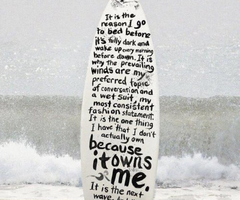 It is the
reason I go
to bed before
it's fully dark and
wake up every morning
before dawn. It is
why the prevailing
winds are my
preferred topic
of conversation and
a wet suit, my
most consistent
fashion statement.
It is the one thing
I have that I don't
actually own
because
it owns
me.
It is the next
wave to